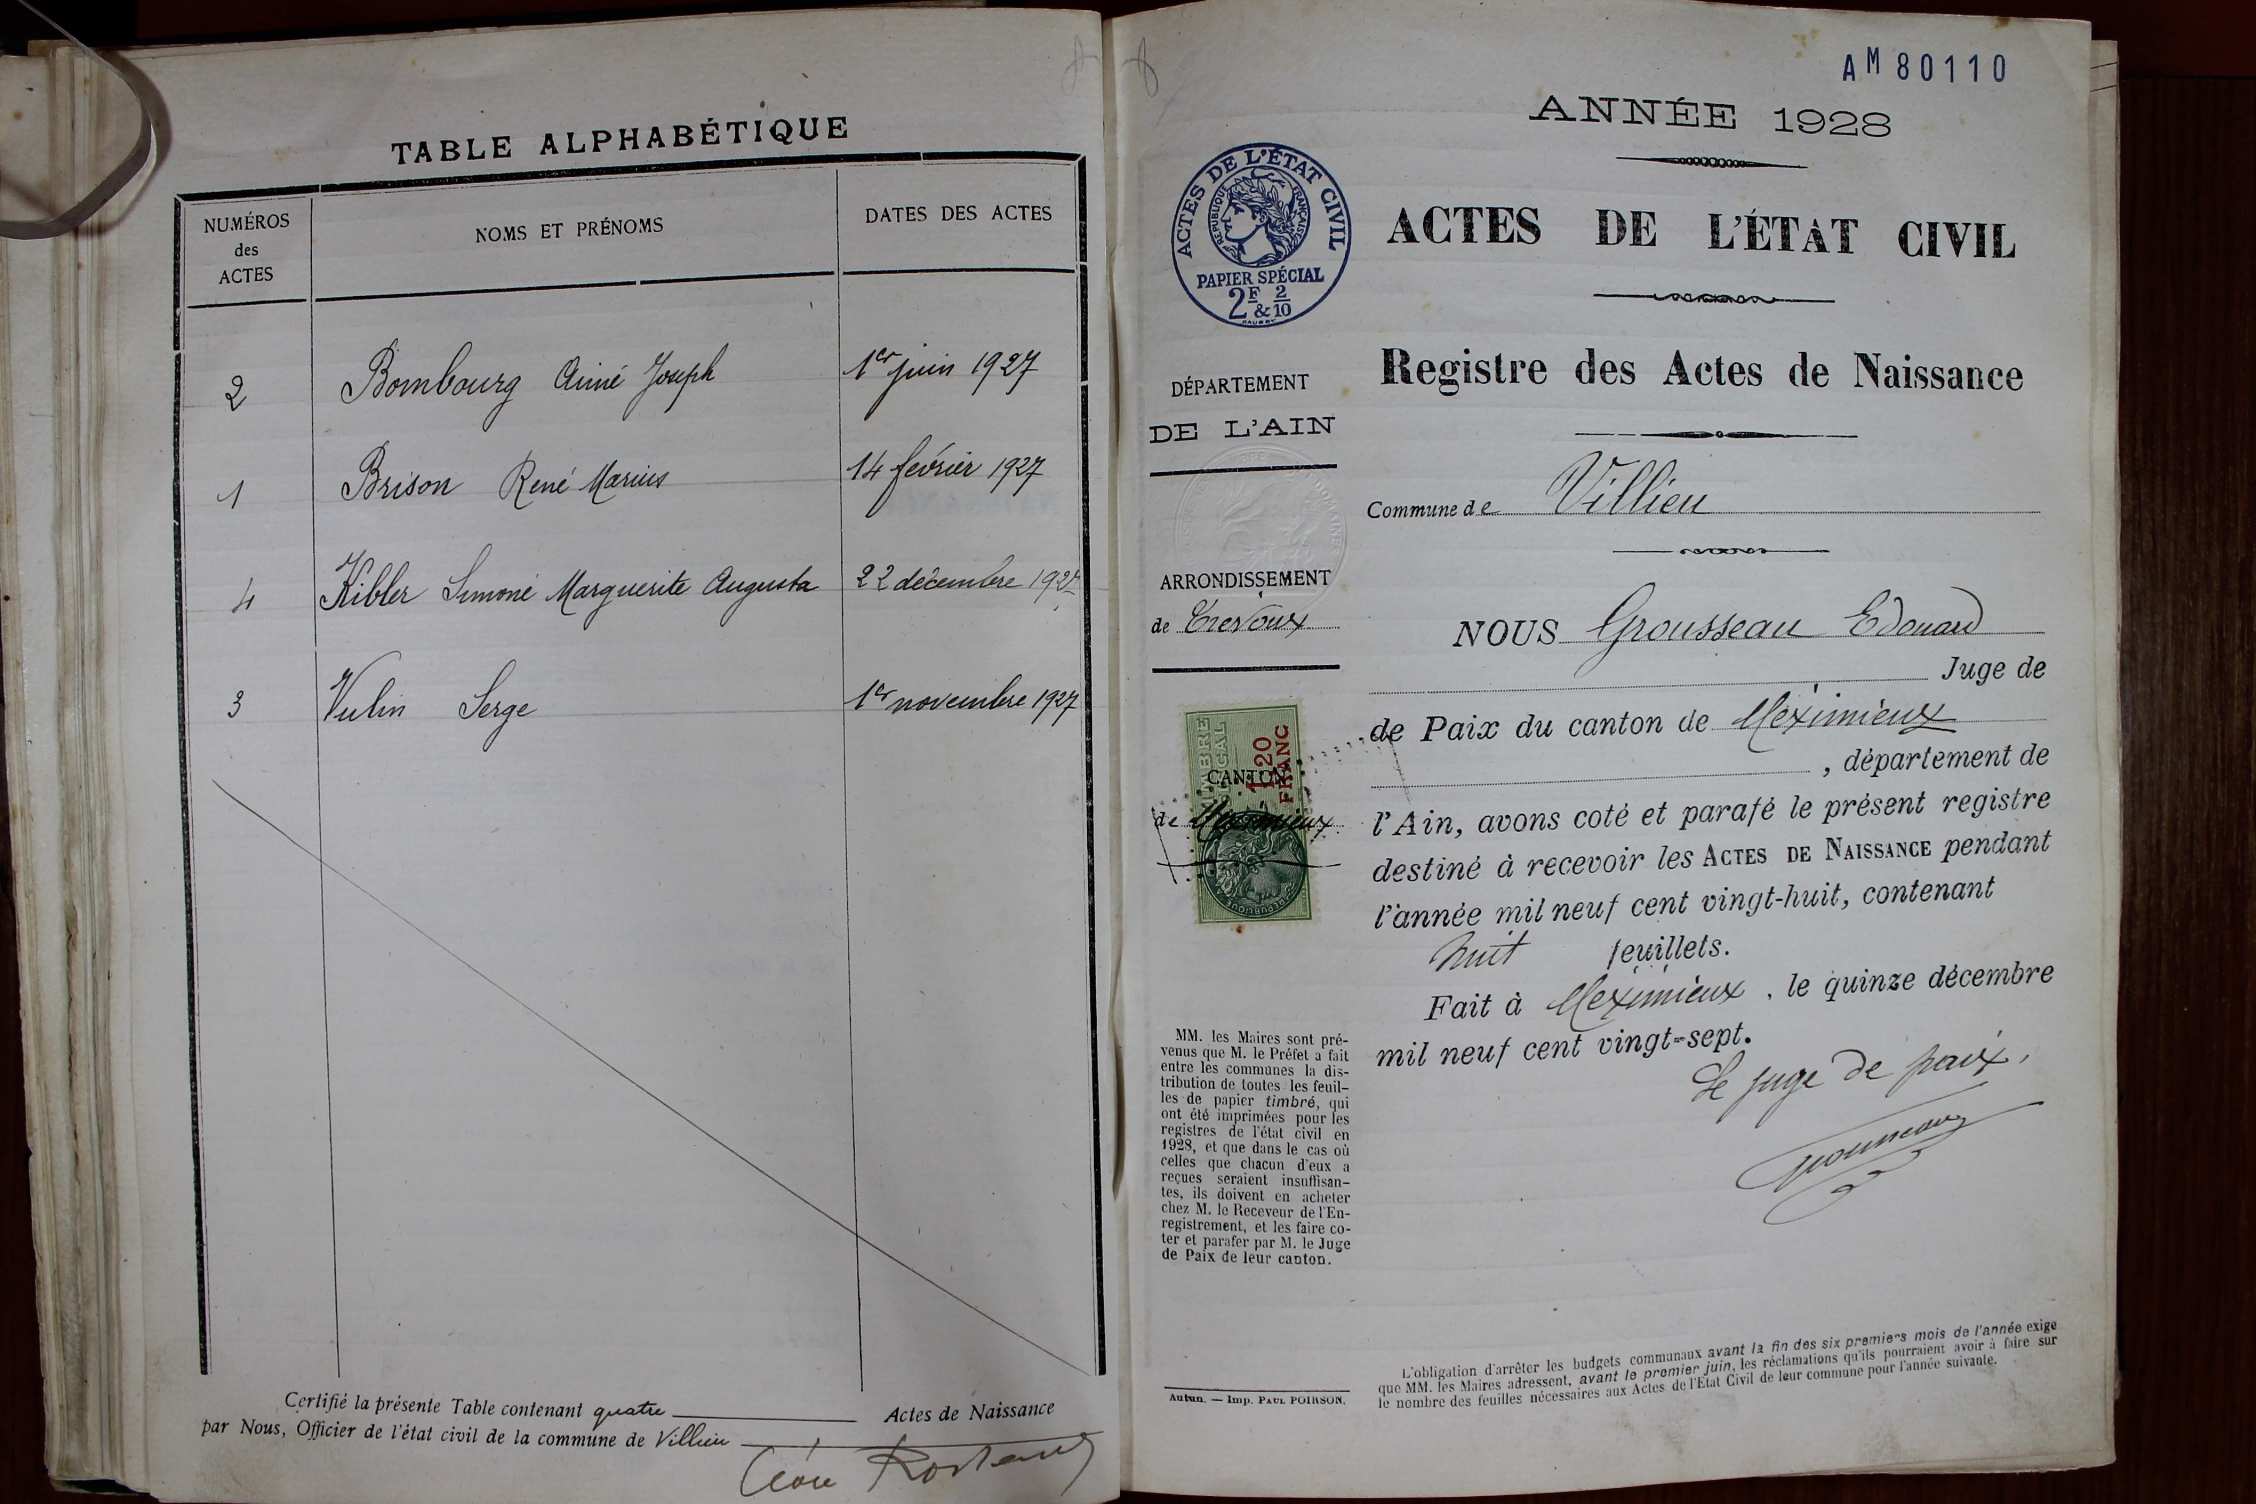 TABLE ALPHABÉTIQUE
NUMÉROS
des
ACTES
NOMS ET PRÉNOMS
DATES DES ACTES
2 Bombourg Aimé Joseph 1er juin 1927
1 Brison René Marius 14 février 1927
4 Kibler Simone Marguerite Augusta 22 décembre 1927
3 Vulin Serge 1er novembre 1927
Certifié la présente Table contenant quatre Actes de Naissance
par Nous, Officier de l'état civil de la commune de Villieu
AM 80110
ANNÉE 1928
ACTES DE L'ÉTAT CIVIL
RÉPUBLIQUE FRANÇAISE
PAPIER SPÉCIAL
2F & 2/10
ACTES DE L'ÉTAT CIVIL
Registre des Actes de Naissance
DÉPARTEMENT
DE L'AIN
Commune de Villieu
ARRONDISSEMENT
de Trévoux
NOUS Grousseau Edouard
Juge de
de Paix du canton de Meximieux
, département de
l'Ain, avons coté et parafé le présent registre
destiné à recevoir les ACTES DE NAISSANCE pendant
l'année mil neuf cent vingt-huit, contenant
huit feuillets.
Fait à Meximieux, le quinze décembre
mil neuf cent vingt-sept.
Le juge de paix,
TIMBRE
FISCAL
1.20
FRANC
CANTON
de Meximieux
MM. les Maires sont pré-
venus que M. le Préfet a fait
entre les communes la dis-
tribution de toutes les feuil-
les de papier timbré, qui
ont été imprimées pour les
registres de l'état civil en
1928, et que dans le cas où
celles que chacun d'eux a
reçues seraient insuffisan-
tes, ils doivent en acheter
chez M. le Receveur de l'En-
registrement, et les faire co-
ter et parafer par M. le Juge
de Paix de leur canton.
Autun. — Imp. PAUL POIRSON.
L'obligation d'arrêter les budgets communaux avant la fin des six premiers mois de l'année exige
que MM. les Maires adressent, avant le premier juin, les réclamations qu'ils pourraient avoir à faire sur
le nombre des feuilles nécessaires aux Actes de l'Etat Civil de leur commune pour l'année suivante.